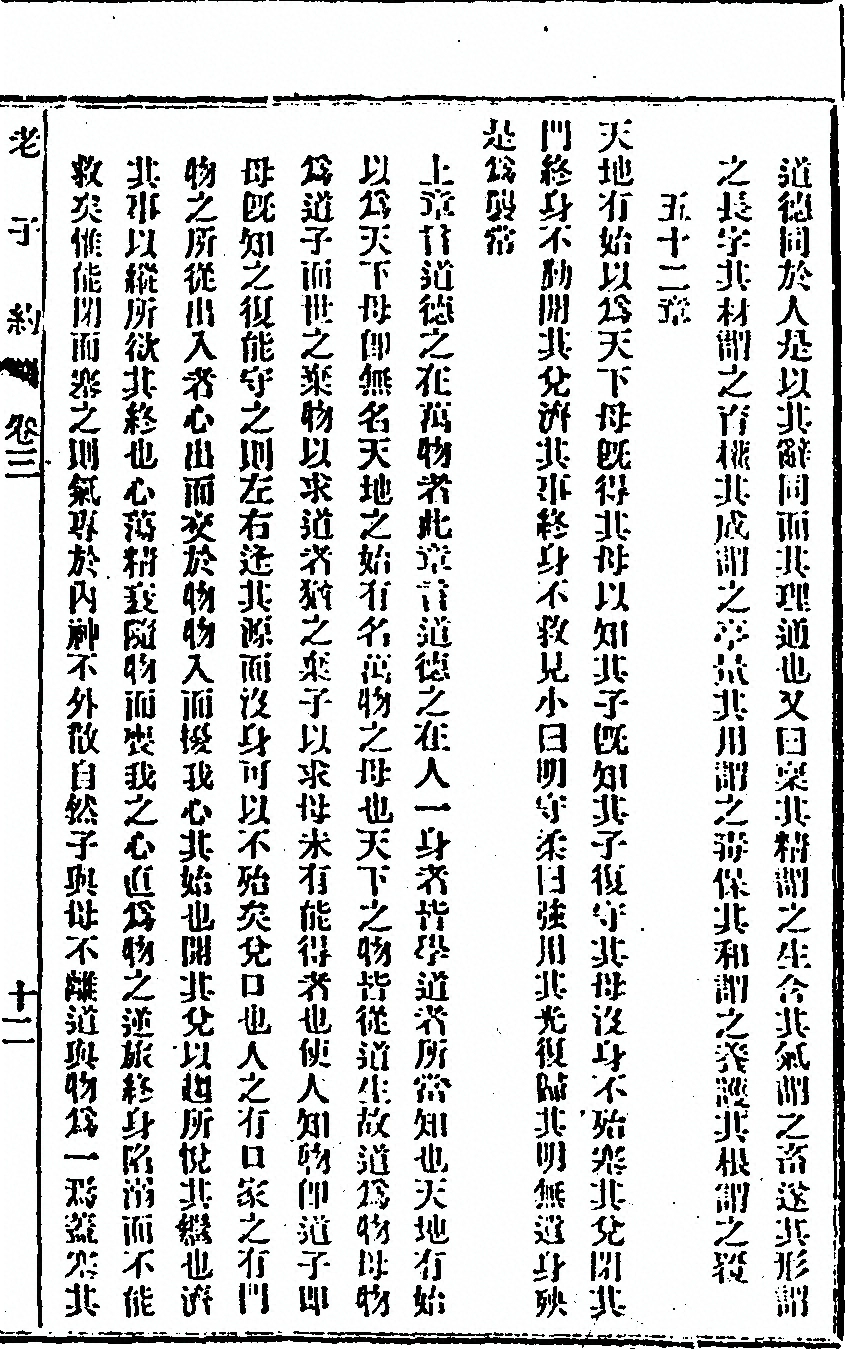 道德同於人是以其辭同而其理通也又曰稟其精謂之生含其氣謂之畜遂其形謂
之長字其材謂之育權其成謂之亭量其用謂之毒保其和謂之養護其根謂之覆
五十二章
天地有始以爲天下母旣得其母以知其子旣知其子復守其母沒身不殆塞其兌閉其
門終身不勤開其兌濟其事終身不救見小曰明守柔曰強用其光復歸其明無遺身殃
是爲襲常
上章言道德之在萬物者此章言道德之在人一身者皆學道者所當知也天地有始
以爲天下母卽無名天地之始有名萬物之母也天下之物皆從道生故道爲物母物
爲道子而世之棄物以求道者猶之棄子以求母未有能得者也使人知物卽道子卽
母旣知之復能守之則左右逢其源而沒身可以不殆矣兌口也人之有口家之有門
物之所從出入者心出而交於物物入而擾我心其始也開其兌以趨所悅其繼也濟
其事以縱所欲其終也心蕩精衰隨物而喪我之心直爲物之逆旅終身陷溺而不能
救矣惟能閉而塞之則氣專於內神不外散自然子與母不離道與物爲一焉蓋塞其
老子約 卷三 十二